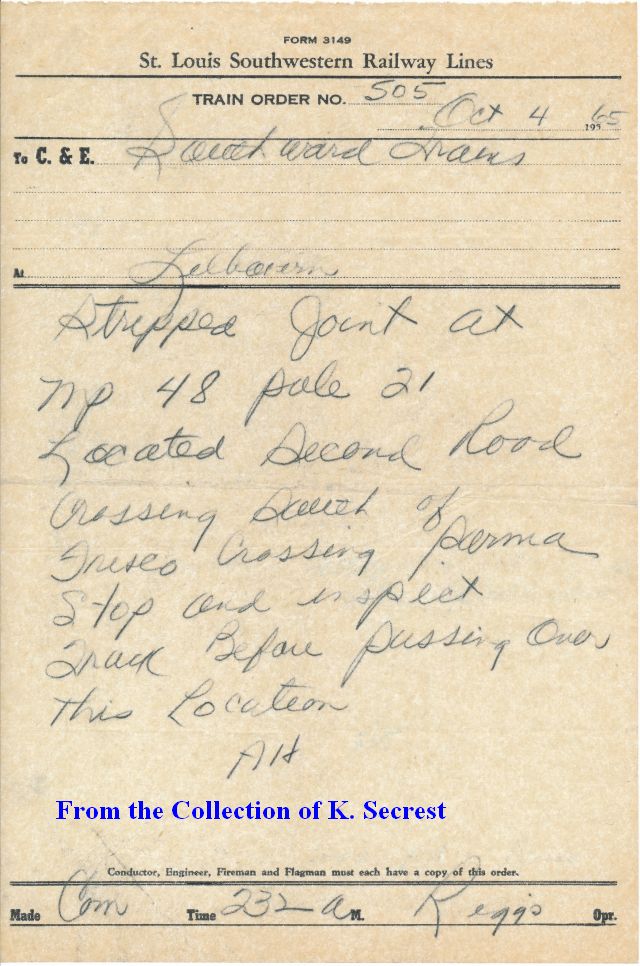 FORM 3149
St. Louis Southwestern Railway Lines
TRAIN ORDER NO. 505
Oct 4 1965
To C. & E. Southward Trains
At Lilbourn
Stripped Joint at
Mp 48 pole 21
Located Second Road
Crossing South of Parma
Frisco Crossing
Stop and inspect
Track Before passing Over
this Location
AH
From the Collection of K. Secrest
Conductor, Engineer, Fireman and Flagman must each have a copy of this order.
Made Com Time 232 A M. Riggs Opr.